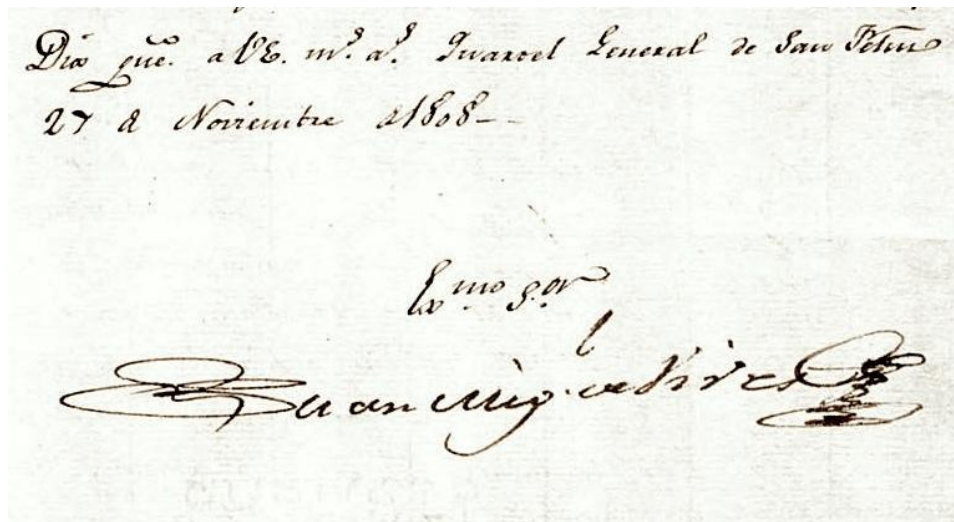 Dios gue. a VE. ms. as. Quartel General de San Feliu
27 de Noviembre de 1808--
Exmo. S.or
Juan Mig. de Vives